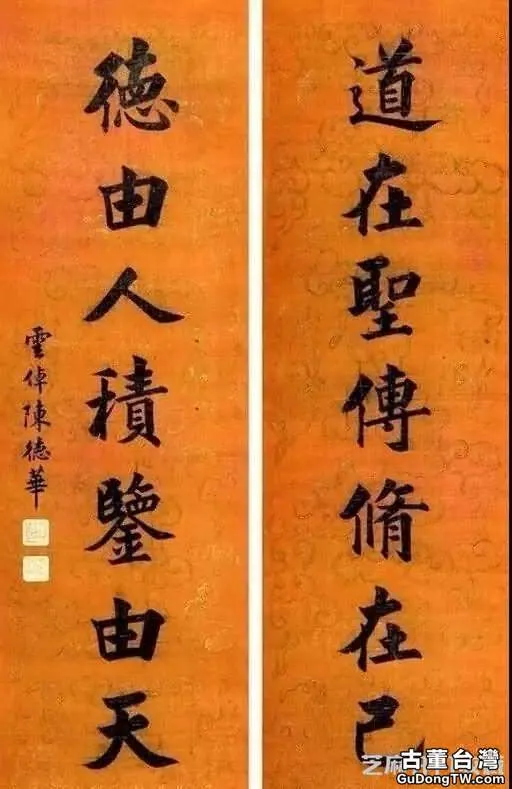 道在聖傳脩在己
德由人積鑒由天
雲倬陳德華
芝麻
古董台灣
GuDongTW.com